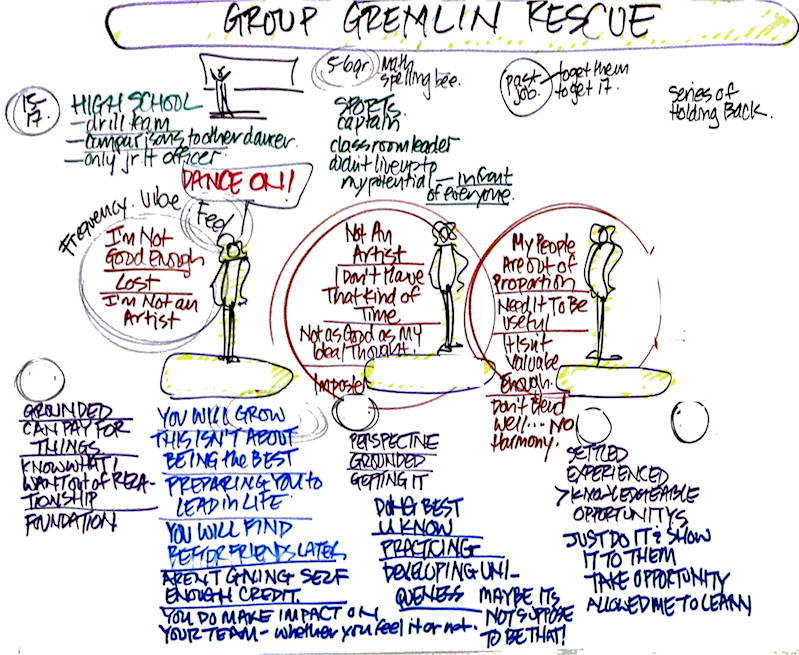 GROUP GREMLIN RESCUE
15-17
HIGH SCHOOL
- drill team
- comparisons to other dancer.
- only jr lt officer.
DANCE ON!
5-6 gr.
Math
spelling bee.
SPORTS
captain
classroom leader
didn't live up to
my potential - in front
of everyone.
past
job.
together them
to get it.
series of
Holding Back.
Frequency. Vibe
Feel
I'm Not
Good Enough
Lost
I'm Not an
Artist
Not An
Artist
I Don't Have
That Kind of
Time
Not as Good as My
Ideal Thought.
Imposter
My People
Are out of
Proportion
Need It To Be
Useful
It Isn't
Valuable
Enough.
Don't Blend
Well... No
Harmony.
GROUNDED
CAN PAY FOR
THINGS
KNOW WHAT I
WANT OUT OF RELA-
TIONSHIP
FOUNDATION
YOU WILL GROW
THIS ISN'T ABOUT
BEING the BEST
PREPARING YOU to
LEAD in LIFE
YOU WILL FIND
BETTER FRIENDS LATER
AREN'T GIVING SELF
ENOUGH CREDIT.
YOU DO MAKE IMPACT ON
YOUR TEAM - whether you feel it or not.
PERSPECTIVE
GROUNDED
GETTING IT
DOING BEST
U KNOW
PRACTICING
DEVELOPING UNI-
QUENESS
MAYBE ITS
NOT SUPPOSE
TO BE THAT!
SETTLED
EXPERIENCED
> KNOWLEDGEABLE
OPPORTUNITYS
JUST DO IT & SHOW
IT TO THEM
TAKE OPPORTUNITY
ALLOWED ME TO LEARN